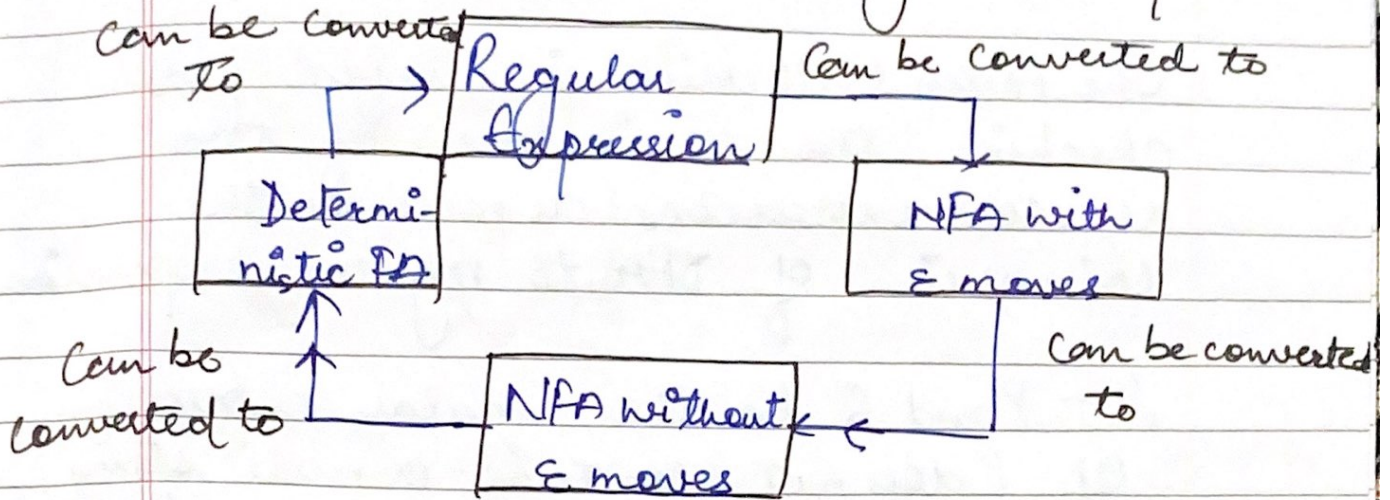 can be converted
to
Regular
Expression
Can be converted to
Determi-
nistic FA
NFA with
ε moves
Can be
converted to
NFA without
ε moves
Can be converted
to